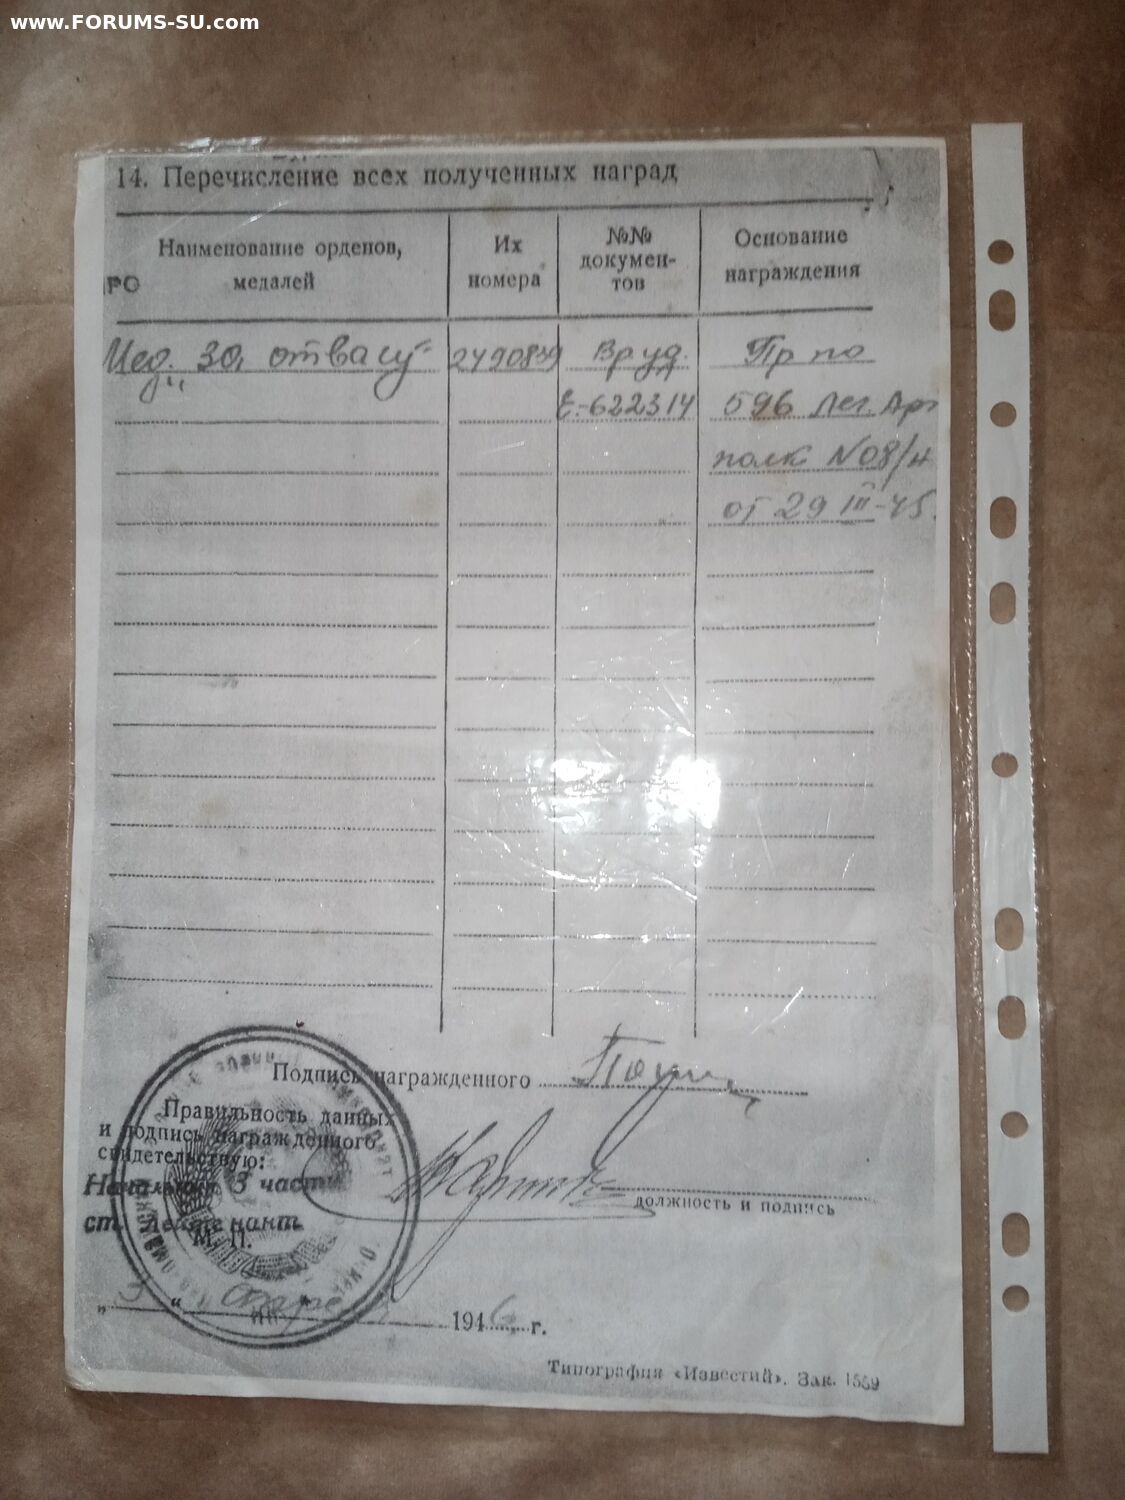 www.FORUMS-SU.com
14. Перечисление всех полученных наград
Наименование орденов, медалей
Их номера
№№ докумен-тов
Основание награждения
РО
Мед. "За отвагу" 2490839 Вр уд. Пр по
Е-622314 596 Лег. Арт
полк N08/н
от 29 III-45.
Подпись награжденного
Правильность данных
и подпись награжденного
свидетельствую:
Начальник 3 части
должность и подпись
ст. лейтенант
М. П.
„3“ апреля 1946 г.
Типография «Известий». Зак. 1559